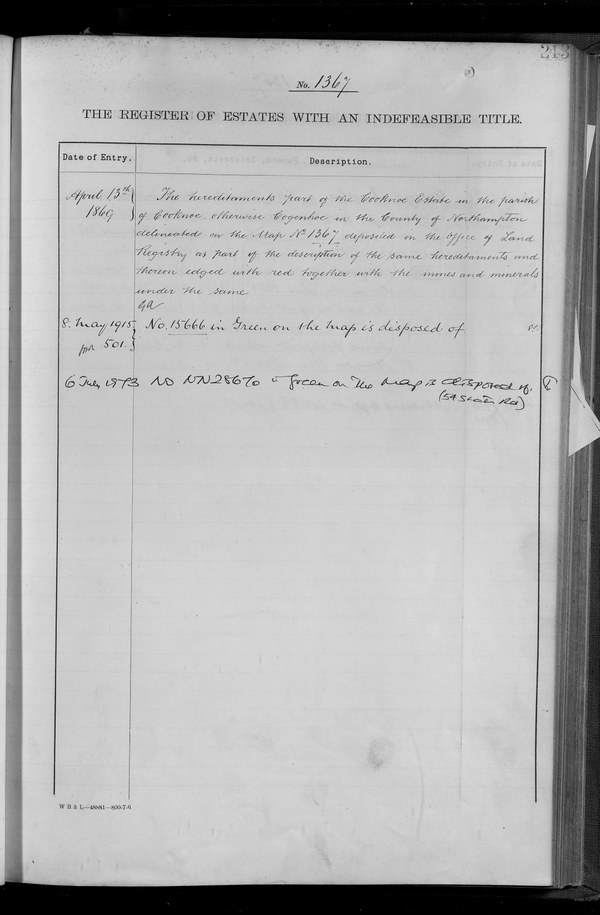 213
No. 1367
THE REGISTER OF ESTATES WITH AN INDEFEASIBLE TITLE.
Date of Entry.
Description.
April 13th
1869
The hereditaments part of the Cooknoe Estate in the parish
of Cooknoe otherwise Cogenhoe in the County of Northampton
delineated on the Map No 1367 deposited in the Office of Land
Registry as part of the description of the same hereditaments and
thereon edged with red together with the mines and minerals
under the same
8. May 1915
501.
No. 15666 in Green on the map is disposed of
6 July 1973
NO NN28670 in green on the map is disposed of.
(54 Station Rd)
W B & L—48881—800-7-0